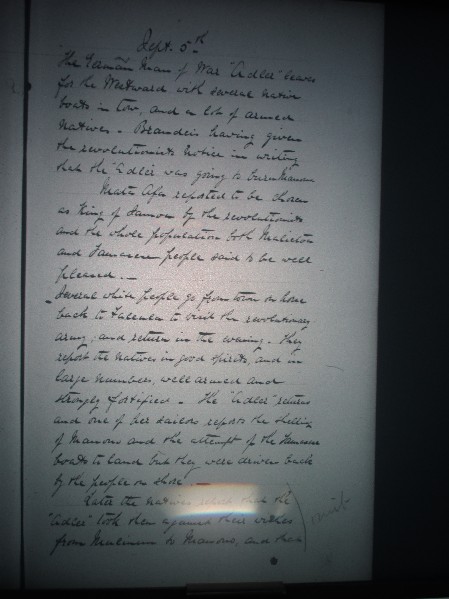 Sept. 5th
The German Man of War "Adler" leaves
for the Westward, with several native
boats in tow, and a lot of armed
natives - Brandeis having given
the revolutionists notice in writing
that the "Adler" was going to burn Manono
Mata Afa reported to be chosen
as King of Samoa by the revolutionists
and the whole population both Malietoa
and Tamasese people said to be well
pleased. -
Several white people go from town on horse
back to Faleula to visit the revolutionary
army, and return in the evening. They
report the natives in good spirits, and in
large numbers, well armed and
strongly fortified - The "Adler" returns
and one of her sailors reports the shelling
of Manono and the attempt of the Tamasese
boats to land but they were driven back
by the people on shore -
Later the natives that the
"Adler" took them against their wishes
from to Manono, and that
omit